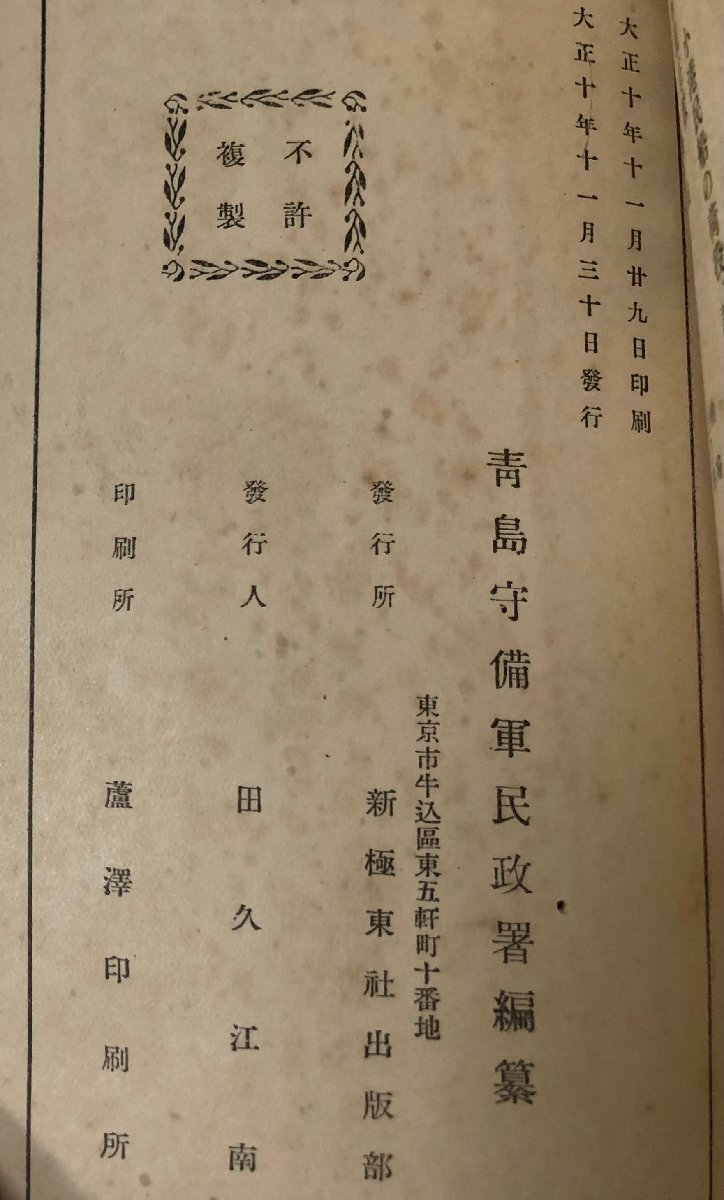 大正十年十一月廿九日印刷
大正十年十一月三十日發行
不許
複製
靑島守備軍民政署編纂
東京市牛込區東五軒町十番地
發行所 新極東社出版部
發行人 田久江南
印刷所 蘆澤印刷所